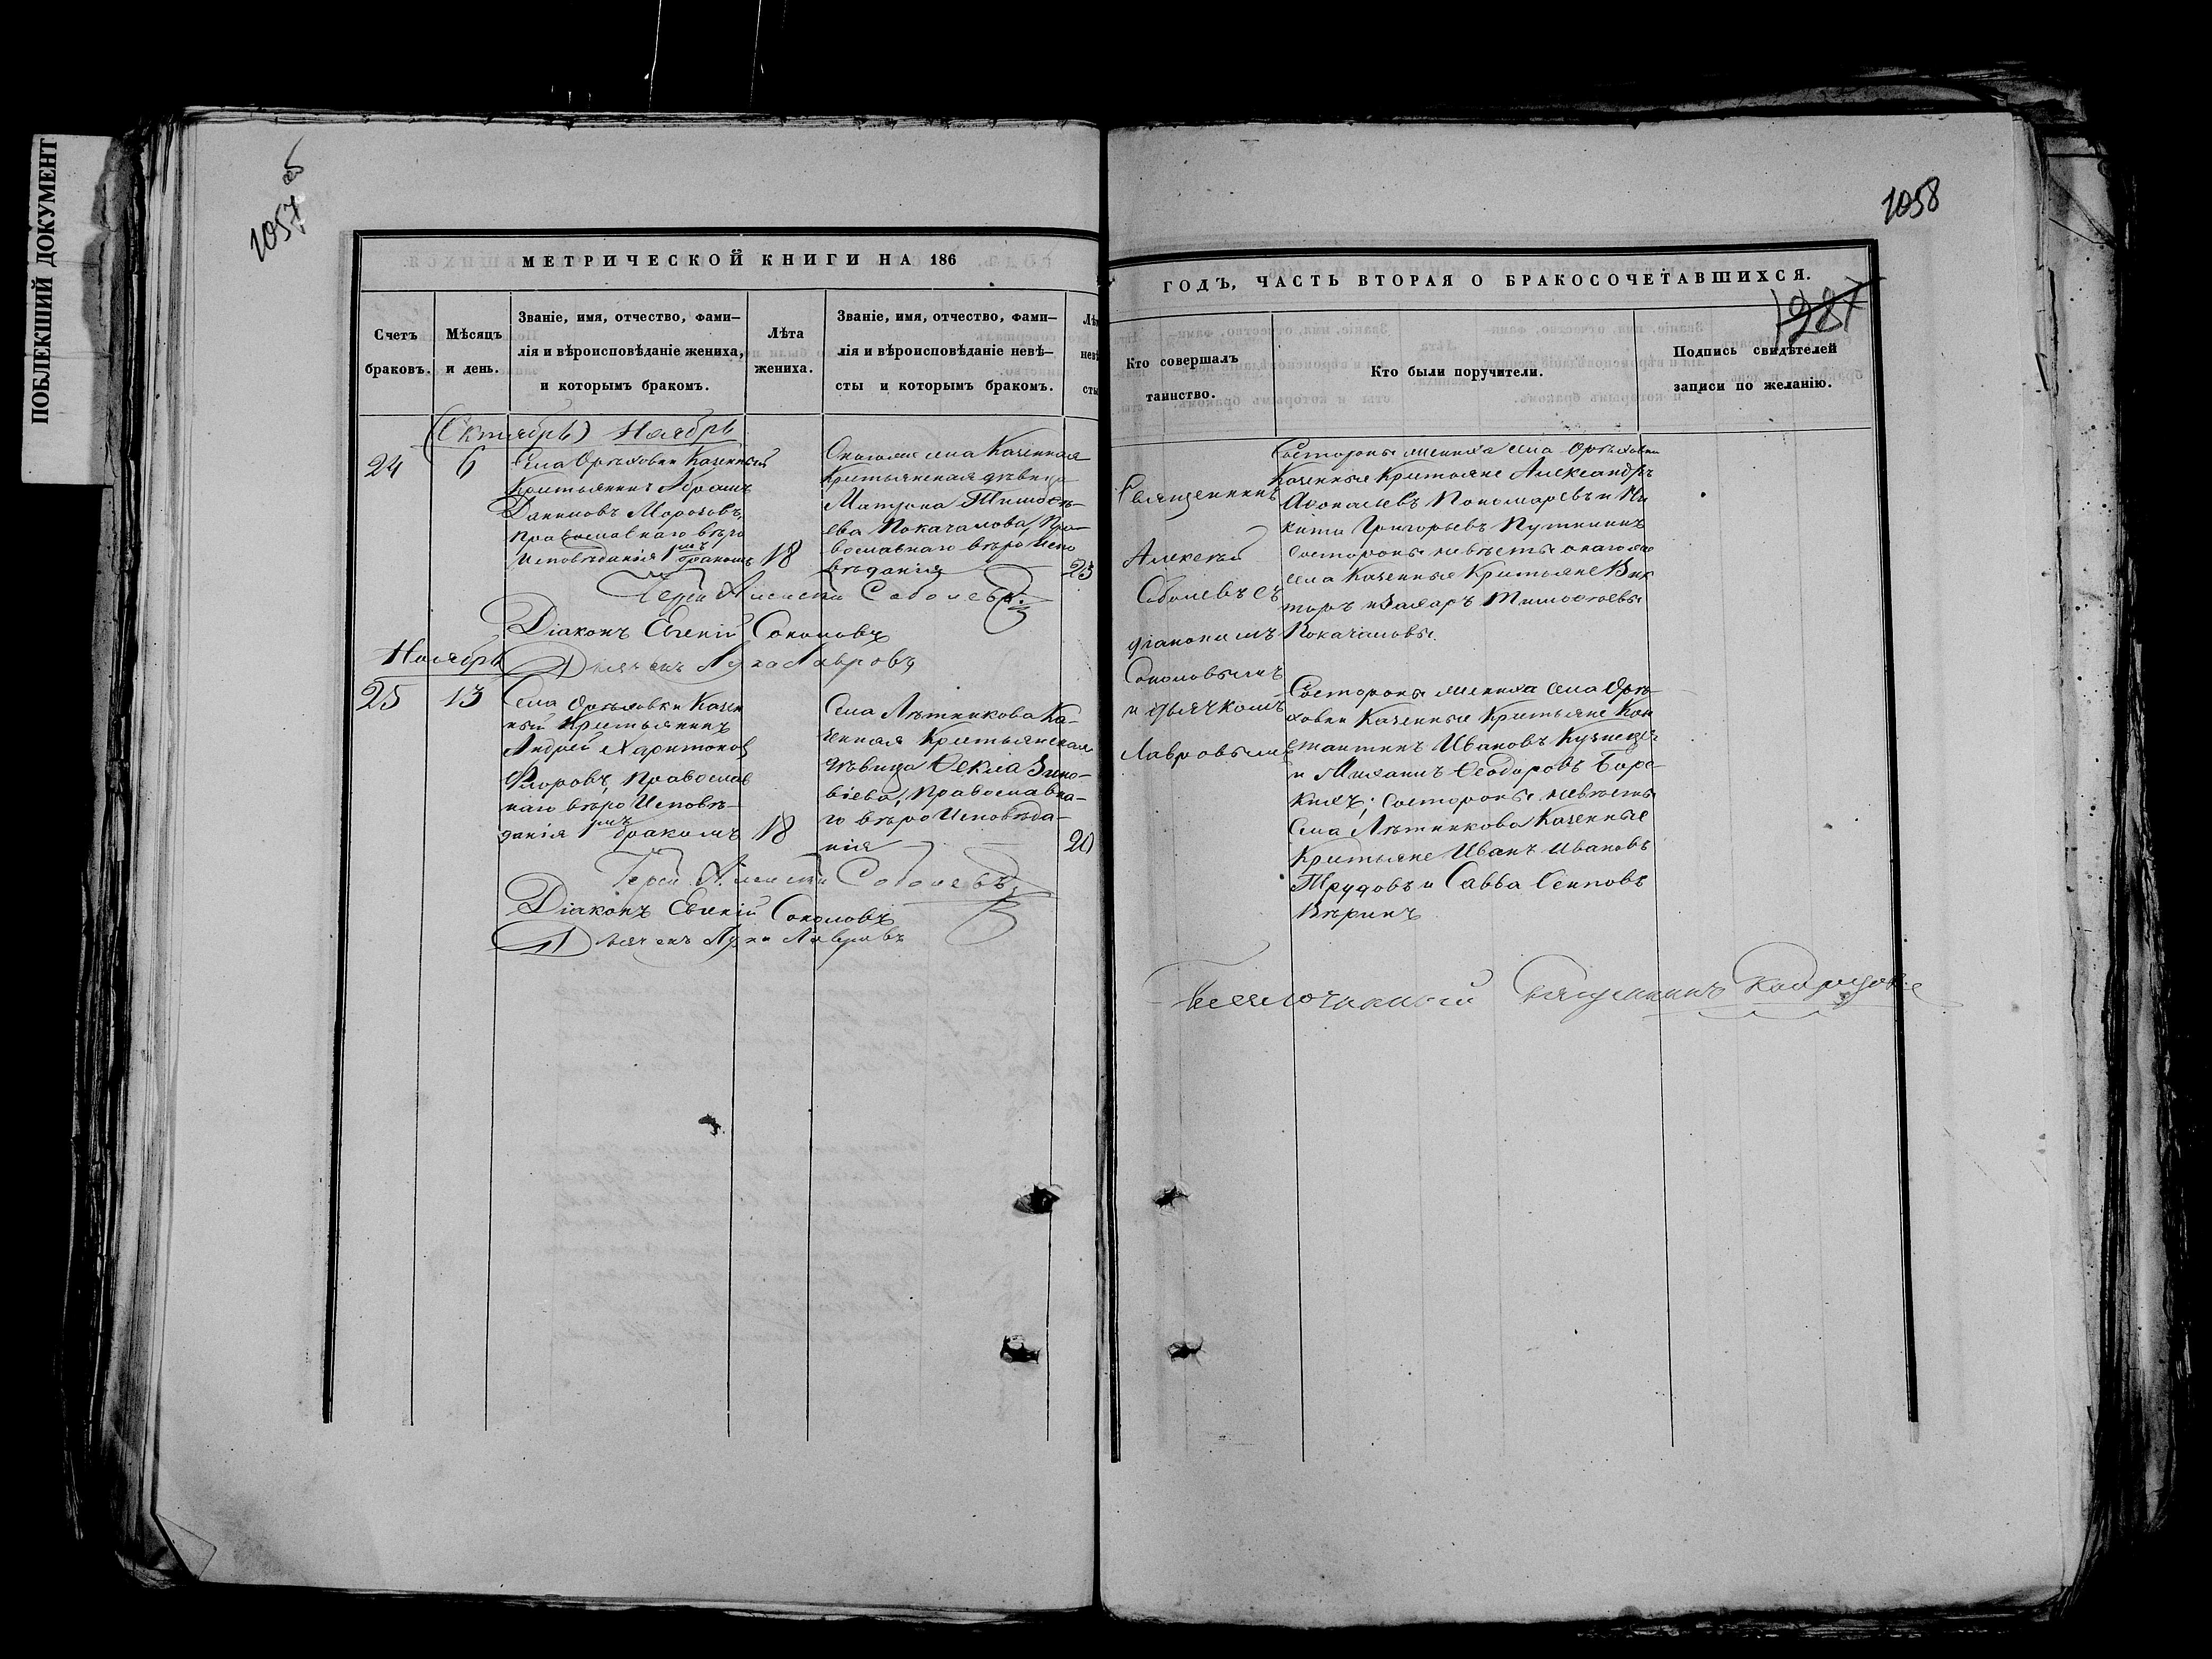 ПОБЛЕКШИЙ ДОКУМЕНТ
1057 об
1058
МЕТРИЧЕСКОЙ КНИГИ НА 186
Счетъ браковъ.
Мѣсяцъ и день.
Званіе, имя, отчество, фами-
лія и вѣроисповѣданіе жениха,
и которымъ бракомъ.
Лѣта жениха.
Званіе, имя, отчество, фами-
лія и вѣроисповѣданіе невѣ-
сты и которымъ бракомъ.
(Октябрь) Ноябрь
24
6
Села Орѣховки Казенный
Крестьянинъ Абрамъ
Даниловъ Морозовъ,
православнаго вѣро
исповѣданія 1мъ бракомъ
18
Онагоже села Казенная
Крестьянская дѣвица
Матрона Тимоѳѣ-
ева Покачалова, Пра-
вославнаго вѣро испо
вѣданія
23
Іерей Алексѣй Соболевъ
Діаконъ Евгеній Соколовъ
Дьячекъ Лука Лавровъ
Ноябрь
25
13
Села Орѣховки Казен
ный Крестьянинъ
Андрей Харитоновъ
Флоровъ, Православ
наго вѣро Исповѣ-
данія 1мъ бракомъ
18
Села Лѣтникова Ка-
зенная Крестьянская
дѣвица Ѳекла Зино-
віева, Православна-
го вѣро Исповѣда-
нія
20
Іерей Алексѣй Соболевъ
Діаконъ Евгеній Соколовъ
Дьячекъ Лука Лавровъ
ГОДЪ, ЧАСТЬ ВТОРАЯ О БРАКОСОЧЕТАВШИХСЯ.
1281
Кто совершалъ
таинство.
Кто были поручители.
Подпись свидѣтелей
записи по желанію.
Священникъ
Алексѣй
Соболевъ съ
діакономъ
Соколовымъ
и дьячкомъ
Лавровымъ
Состороны жениха села Орѣховки
Казенные Крестьяне Александръ
Аѳонасьевъ Пономаревъ и Ни
кита Григорьевъ Путилинъ
состороны невѣсты онагоже
села Казенные Крестьяне Вик
торъ и Захаръ Тимоѳѣевы
Покачаловы
Состороны жениха села Орѣ-
ховки Казенные Крестьяне Кон
стантинъ Ивановъ Кузнецовъ
и Михаилъ Ѳеодоровъ
состороны невѣсты
Села Лѣтникова Казенные
Крестьяне Иванъ Ивановъ
Трудовъ и Савва Осиповъ
Вѣринъ
Благочинный Священникъ